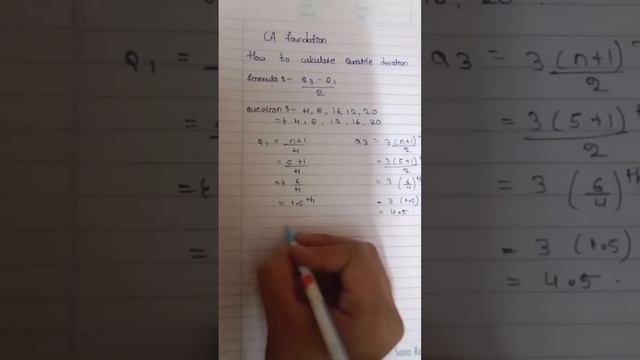 CA foundation
How to calculate Quartile deviation
formula :- Q3 - Q1
2
question :- 4, 8, 16, 12, 20
= 4, 8, 12, 16, 20
Q1 = n+1
4
= 5+1
4
= 6
4
= 1.5th
Q3 = 3(n+1)
2
= 3(5+1)th
2
= 3 (6/4)th
= 3 (1.5)
= 4.5
Sana